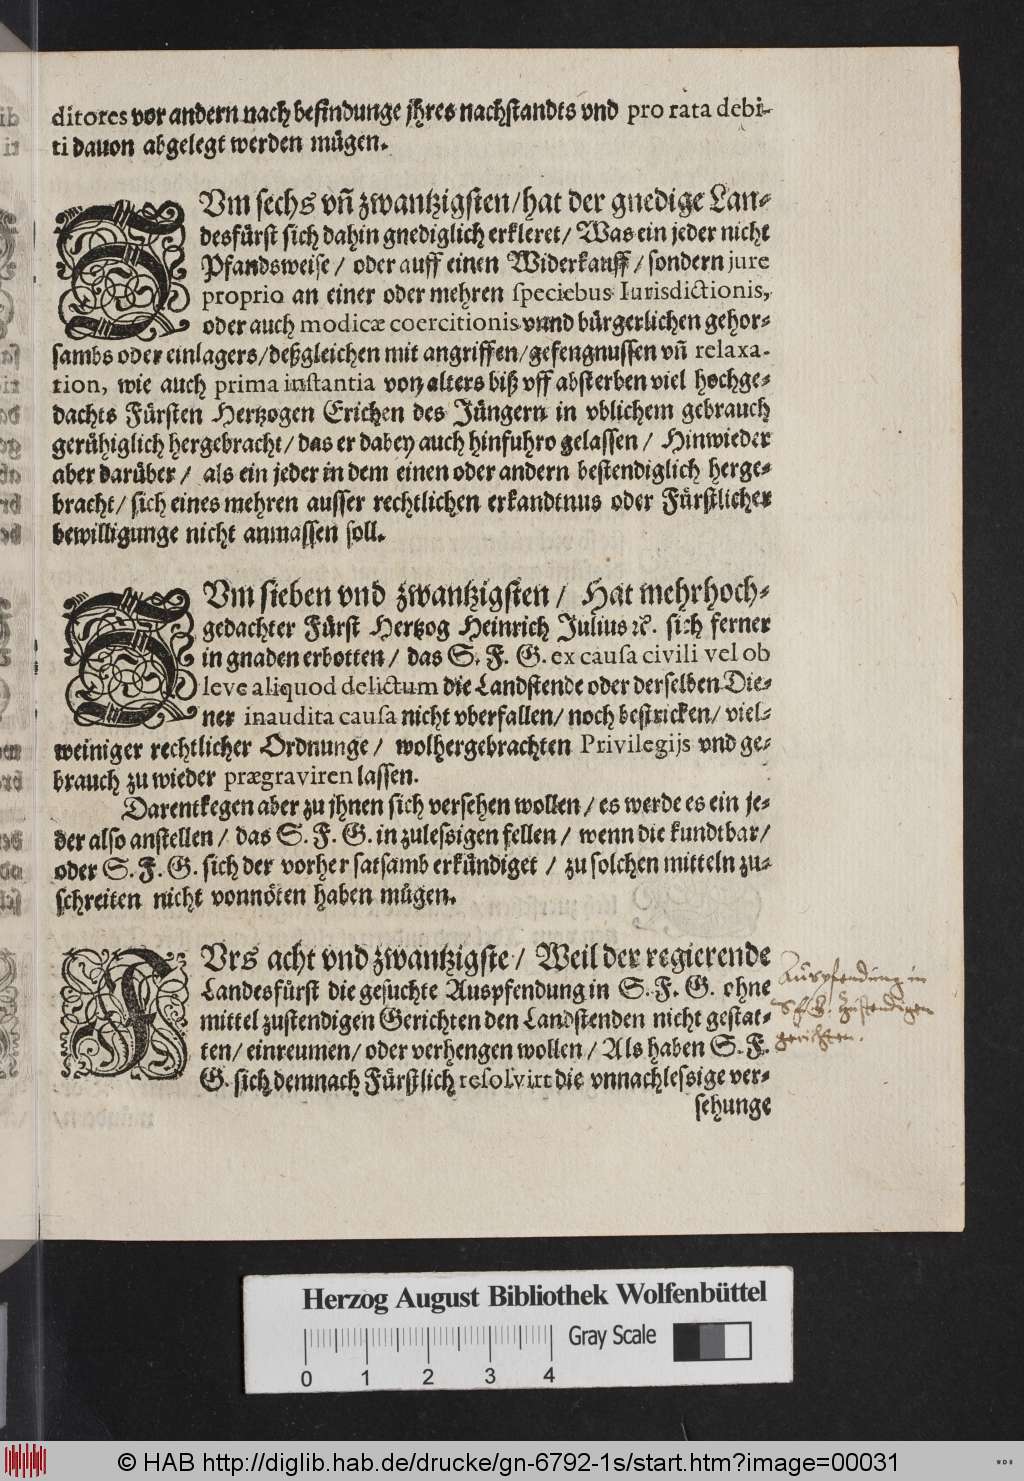 ditores vor andern nach befindunge jhres nachstandts vnd pro rata debi-
ti dauon abgelegt werden mügen.
ZVm sechs vñ zwantzigsten/ hat der gnedige Lan-
desfürst sich dahin gnediglich erkleret/ Was ein jeder nicht
Pfandsweise/ oder auff einen Widerkauff/ sondern jure
proprio an einer oder mehren speciebus Iurisdictionis,
oder auch modicæ coercitionis vnnd bürgerlichen gehor-
sambs oder einlagers/ deßgleichen mit angriffen/ gefengnussen vñ relaxa-
tion, wie auch prima instantia von alters biß vff absterben viel hochge-
dachts Fürsten Hertzogen Erichen des Jüngern in vblichem gebrauch
gerühiglich hergebracht/ das er dabey auch hinfuhro gelassen/ Hinwieder
aber darüber/ als ein jeder in dem einen oder andern bestendiglich herge-
bracht/ sich eines mehren ausser rechtlichen erkandtnus oder Fürstlicher
bewilligunge nicht anmassen soll.
ZVm sieben vnd zwantzigsten/ Hat mehrhoch-
gedachter Fürst Hertzog Heinrich Julius ꝛc. sich ferner
in gnaden erbotten/ das S. F. G. ex causa civili vel ob
leve aliquod delictum die Landstende oder derselben Die-
ner inaudita causa nicht vberfallen/ noch bestricken/ viel-
weiniger rechtlicher Ordnunge/ wolhergebrachten Privilegijs vnd ge-
brauch zu wieder prægraviren lassen.
Darentkegen aber zu jhnen sich versehen wollen/ es werde es ein je-
der also anstellen/ das S. F. G. in zulessigen fellen/ wenn die kundtbar/
oder S. F. G. sich der vorher satsamb erkündiget/ zu solchen mitteln zu-
schreiten nicht vonnöten haben mügen.
FVrs acht vnd zwantzigste/ Weil der regierende
Landesfürst die gesuchte Auspfendung in S. F. G. ohne
mittel zustendigen Gerichten den Landstenden nicht gestat-
ten/ einreumen/ oder verhengen wollen/ Als haben S. F.
G. sich demnach Fürstlich resolvirt die vnnachlessige ver-
sehunge
Auspfendung in
S. F. G. zustendigen
gerichten.
Herzog August Bibliothek Wolfenbüttel
Gray Scale
0 1 2 3 4
© HAB http://diglib.hab.de/drucke/gn-6792-1s/start.htm?image=00031